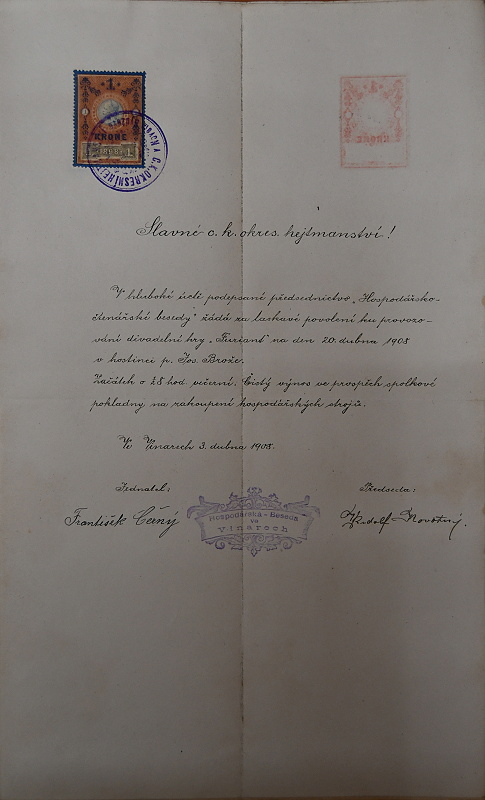 1
KRONE
1898
1
KRONE
C. K. OKRESNÍ
Slavné c. k. okres. hejtmanství!
V hluboké úctě podepsané předsednictvo „Hospodářsko-
čtenářské besedy" žádá za laskavé povolení ku provozo-
vání divadelní hry „Furiant" na den 20. dubna 1908
v hostinci p. Jos. Brože.
Začátek o ½8 hod. večerní. Čistý výnos ve prospěch spolkové
pokladny na zakoupení hospodářských strojů.
Ve Vinarech 3. dubna 1908.
Jednatel:
Předseda:
František Černý
Hospodářská-Beseda
ve
vinarech
Rudolf Novotný.